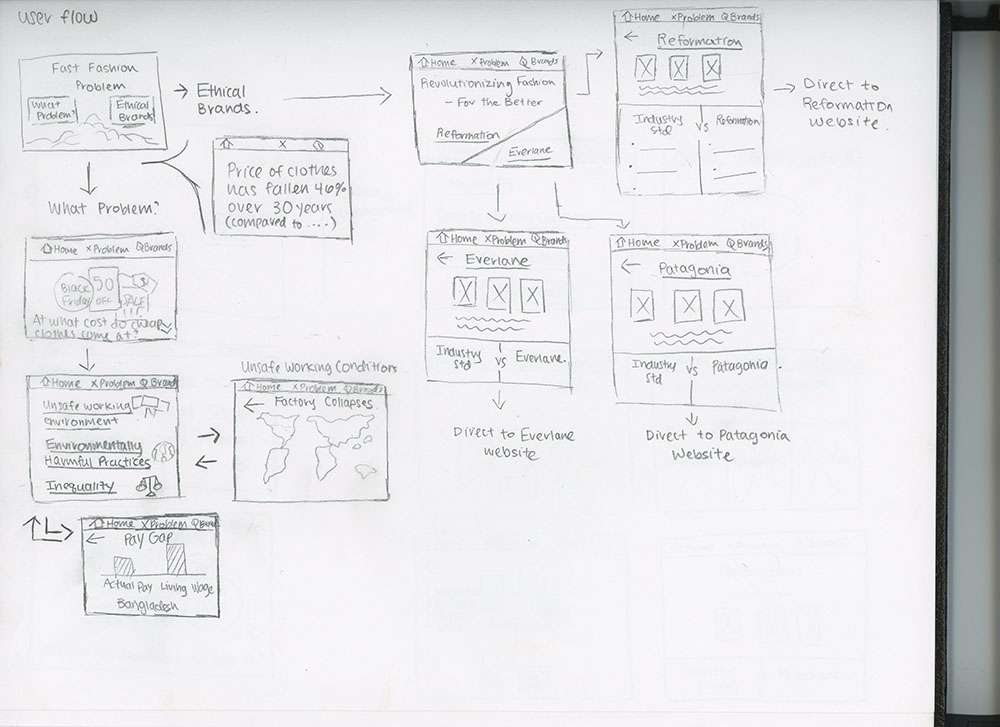 user flow
Fast Fashion
Problem
What
Problem?
Ethical
Brands
Ethical
Brands.
What Problem?
Price of clothes
has fallen 46%
over 30 years
(compared to ....)
Home xProblem Brands
Black
Friday
50
OFF
SALE
$
At what cost do cheap
clothes come at?
Home xProblem Brands
Unsafe working
environment
Environmentally
Harmful Practices
Inequality
Unsafe Working Conditions
Home xProblem Brands
Factory Collapses
Home xProblem Brands
Pay Gap
Actual Pay Living Wage
Bangladesh
Home xProblem Brands
Revolutionizing Fashion
- For the Better
Reformation
Everlane
Home xProblem Brands
Reformation
Industry
Std
vs
Reformation
Direct to
Reformation
website.
Home xProblem Brands
Everlane
Industry
Std
vs
Everlane.
Direct to Everlane
website
Home xProblem Brands
Patagonia
Industry
Std
vs
Patagonia.
Direct to Patagonia
Website